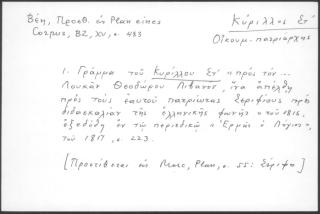 Βέη, Προσθ. εἰς Plan eines
Corpus, BZ, XV, σ. 483
Κύριλλος Στ'
Οἰκουμ. πατριάρχης
1. Γράμμα τοῦ Κυρίλλου Στ' "πρὸς τὸν...
Λουκᾶν Θεοδώρου Λιβανὸν, ἵνα ἀπέλθῃ
πρὸς τοὺς ἑαυτοῦ πατριώτας Σεριφίους πρὸς
διδασκαλίαν τῆς ἑλληνικῆς φωνῆς" τοῦ 1815,
ἐξεδόθη ἐν τῷ περιοδικῷ "Ἑρμῆς ὁ Λόγιος",
τοῦ 1817, σ. 223.
[Προστίθεται εἰς Marc, Plan, σ. 55: Σέριφος]